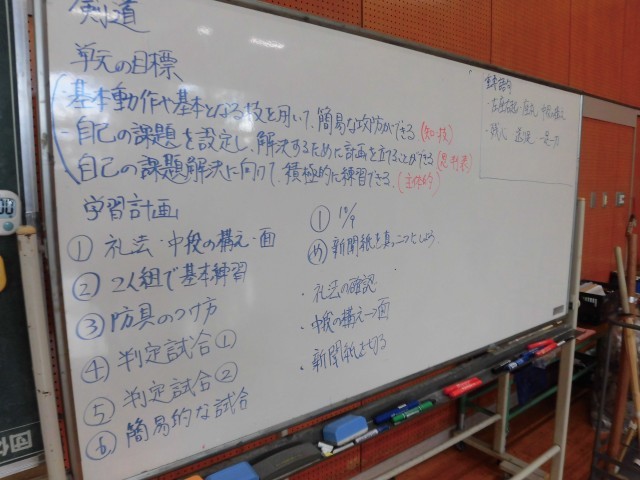 剣道
単元の目標
・基本動作や基本となる技を用いて、簡易な攻防ができる。(知・技)
・自己の課題を設定し、解決するために計画を立てることができる(思判表)
・自己の課題解決に向けて、積極的に練習できる。(主体的)
学習計画
① 礼法・中段の構え・面
② 2人組で基本練習
③ 防具のつけ方
④ 判定試合①
⑤ 判定試合②
⑥ 簡易的な試合
① 10/9
め 新聞紙を真っ二つにしよう
・礼法の確認
・中段の構え→面
・新聞紙を切る
・残心
00